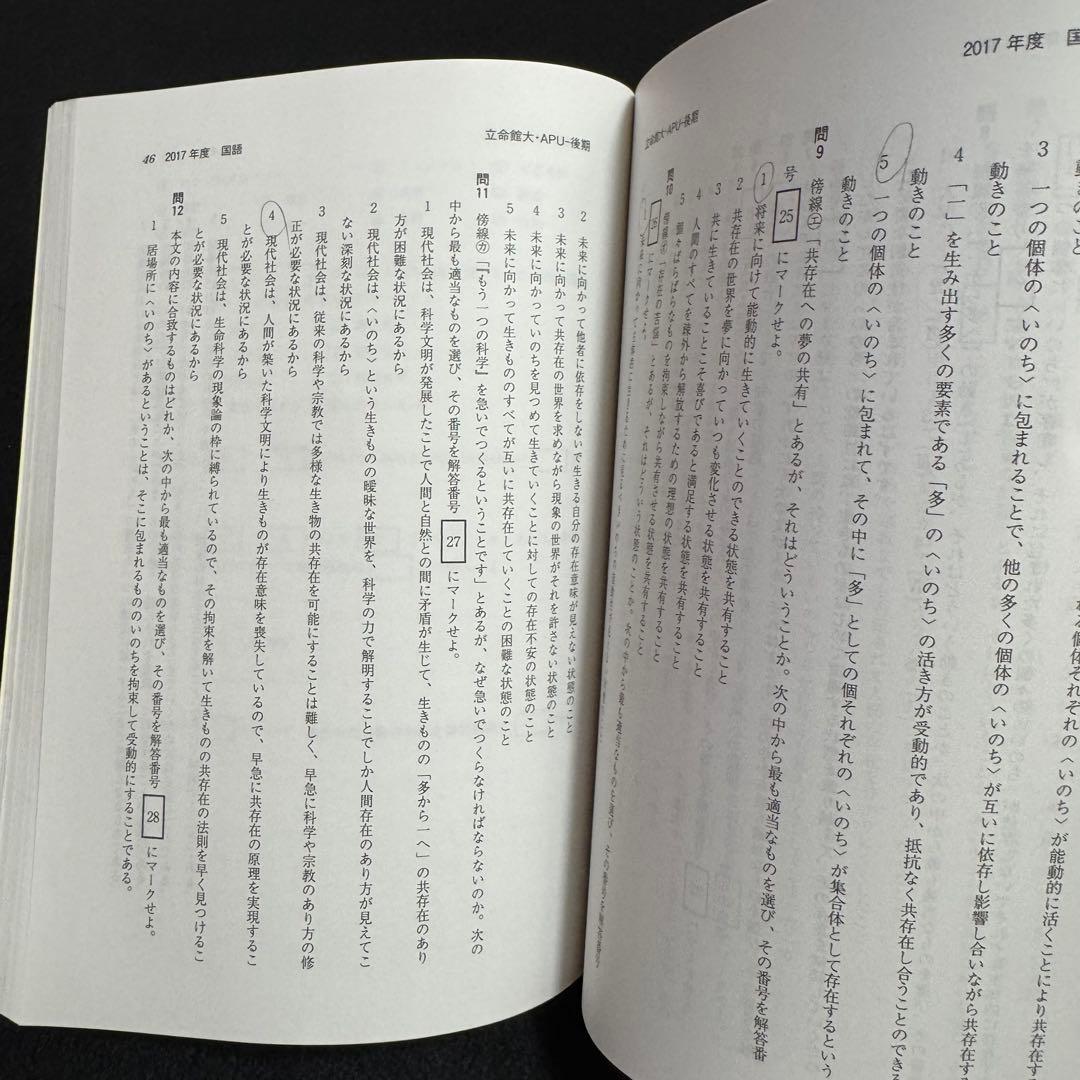 2017年度 国
動きのこと
3 一つの個体の〈いのち〉に包まれることで、他の多くの個体の〈いのち〉が互いに依存し影響し合いながら共存在す
動きのこと
4 「一」を生み出す多くの要素である「多」の〈いのち〉の活き方が受動的であり、抵抗なく共存在し合うことのでき
動きのこと
5 一つの個体の〈いのち〉に包まれて、その中に「多」としての個それぞれの〈いのち〉が集合体として存在するという
動きのこと
問9 傍線㋓「共存在への夢の共有」とあるが、それはどういうことか。次の中から最も適当なものを選び、その番号を解答番
号 25 にマークせよ。
1 将来に向けて能動的に生きていくことのできる状態を共有すること
2 共存在の世界を夢に向かっていつも変化させる状態を共有すること
3 共に生きていることこそ喜びであると満足する状態を共有すること
4 人間のすべてを疎外から解放するための理想の状態を共有すること
5 個々ばらばらなものを拘束しながら共有させる状態を共有すること
問10 傍線㋔「存在の苦悩」とあるが、それはどういう状態のことか。次の中から最も適当なものを選び、その番号を解答番号
26 にマークせよ。
立命館大・APU-後期
立命館大・APU-後期
46 2017年度 国語
2 未来に向かって他者に依存をしないで生きる自分の存在意味が見えない状態のこと
3 未来に向かって共存在の世界を求めながら現象の世界がそれを許さない状態のこと
4 未来に向かっていのちを見つめて生きていくことに対しての存在不安の状態のこと
5 未来に向かって生きもののすべてが互いに共存在していくことの困難な状態のこと
問11 傍線㋕「『もう一つの科学』を急いでつくるということです」とあるが、なぜ急いでつくらなければならないのか。次の
中から最も適当なものを選び、その番号を解答番号 27 にマークせよ。
1 現代社会は、科学文明が発展したことで人間と自然との間に矛盾が生じて、生きものの「多から一へ」の共存在のあり
方が困難な状況にあるから
2 現代社会は、〈いのち〉という生きものの曖昧な世界を、科学の力で解明することでしか人間存在のあり方が見えてこ
ない深刻な状況にあるから
3 現代社会は、従来の科学や宗教では多様な生き物の共存在を可能にすることは難しく、早急に科学や宗教のあり方の修
正が必要な状況にあるから
4 現代社会は、人間が築いた科学文明により生きものが存在意味を喪失しているので、早急に共存在の原理を実現するこ
とが必要な状況にあるから
5 現代社会は、生命科学の現象論の枠に縛られているので、その拘束を解いて生きものの共存在の法則を早く見つけるこ
とが必要な状況にあるから
問12 本文の内容に合致するものはどれか、次の中から最も適当なものを選び、その番号を解答番号 28 にマークせよ。
1 居場所に〈いのち〉があるということは、そこに包まれるもののいのちを拘束して受動的にすることである。